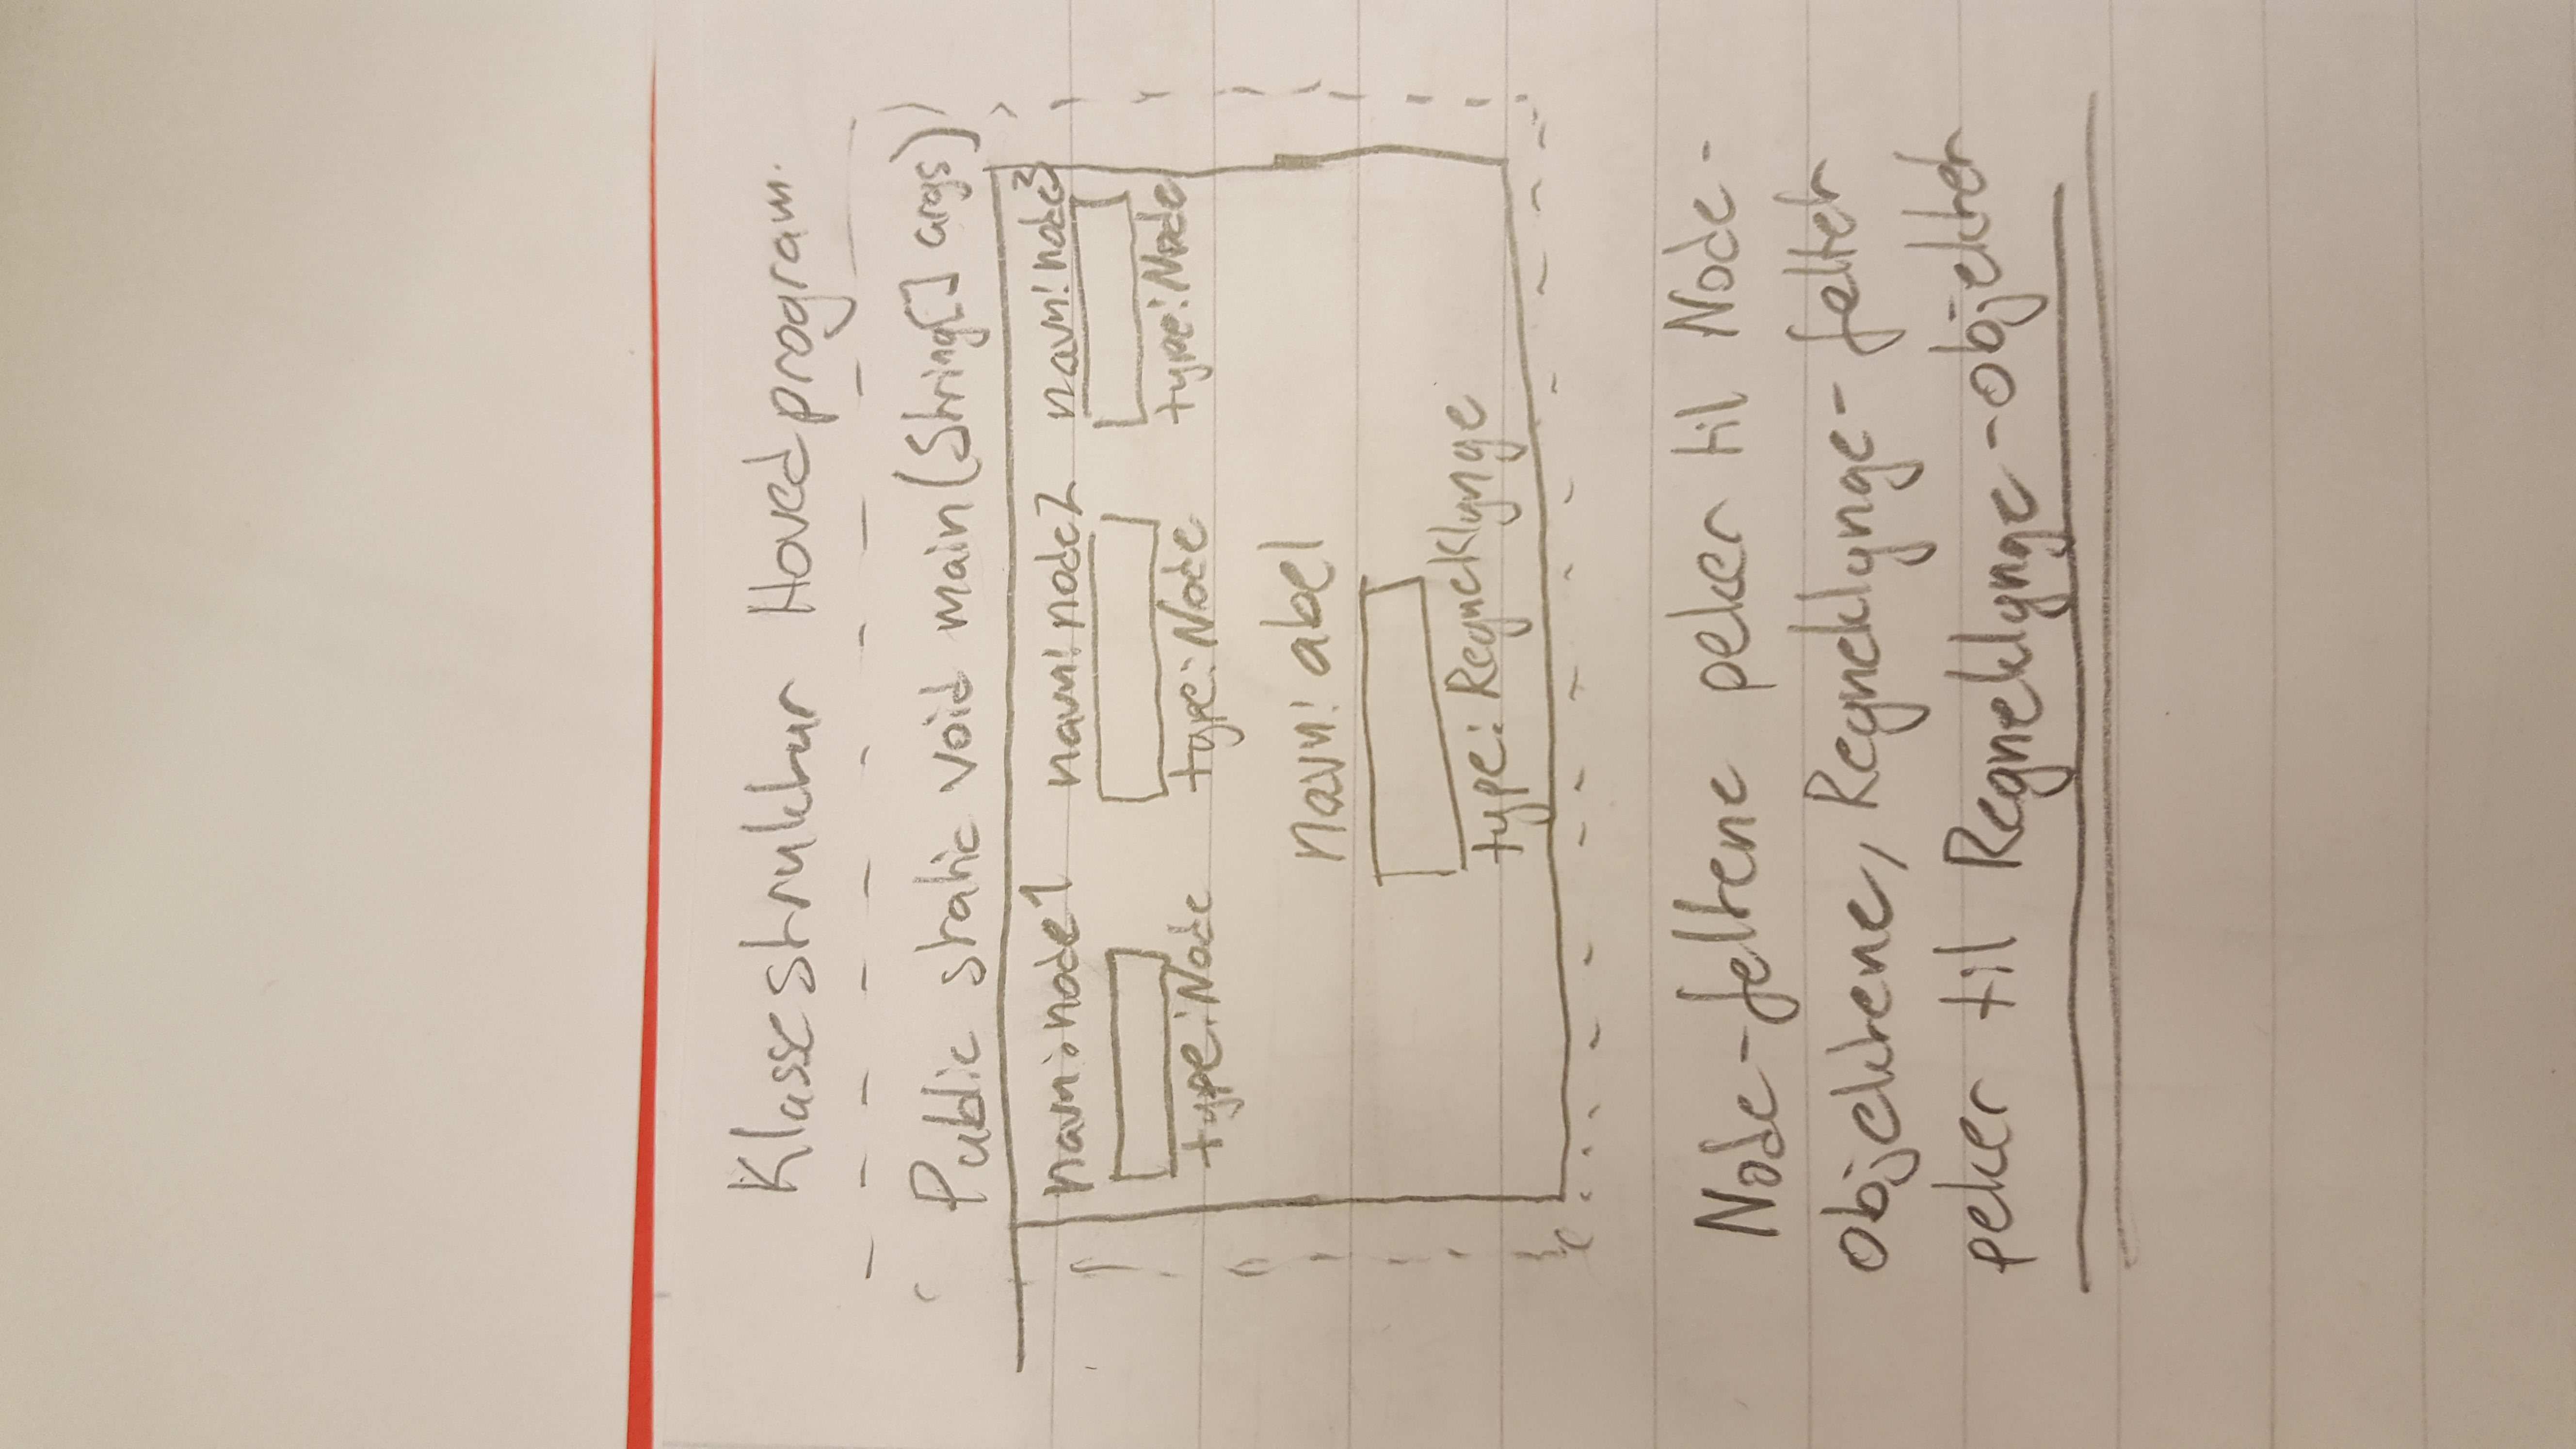 Klassestruktur Hovedprogram.
Public static void main(String[] args)
navn: node1 navn: node2 navn: node3
type: Node type: Node type: Node
navn: abel
type: Regneklynge
Node-feltene peker til Node-
objektene, Regneklynge-feltet
peker til Regneklynge-objektet